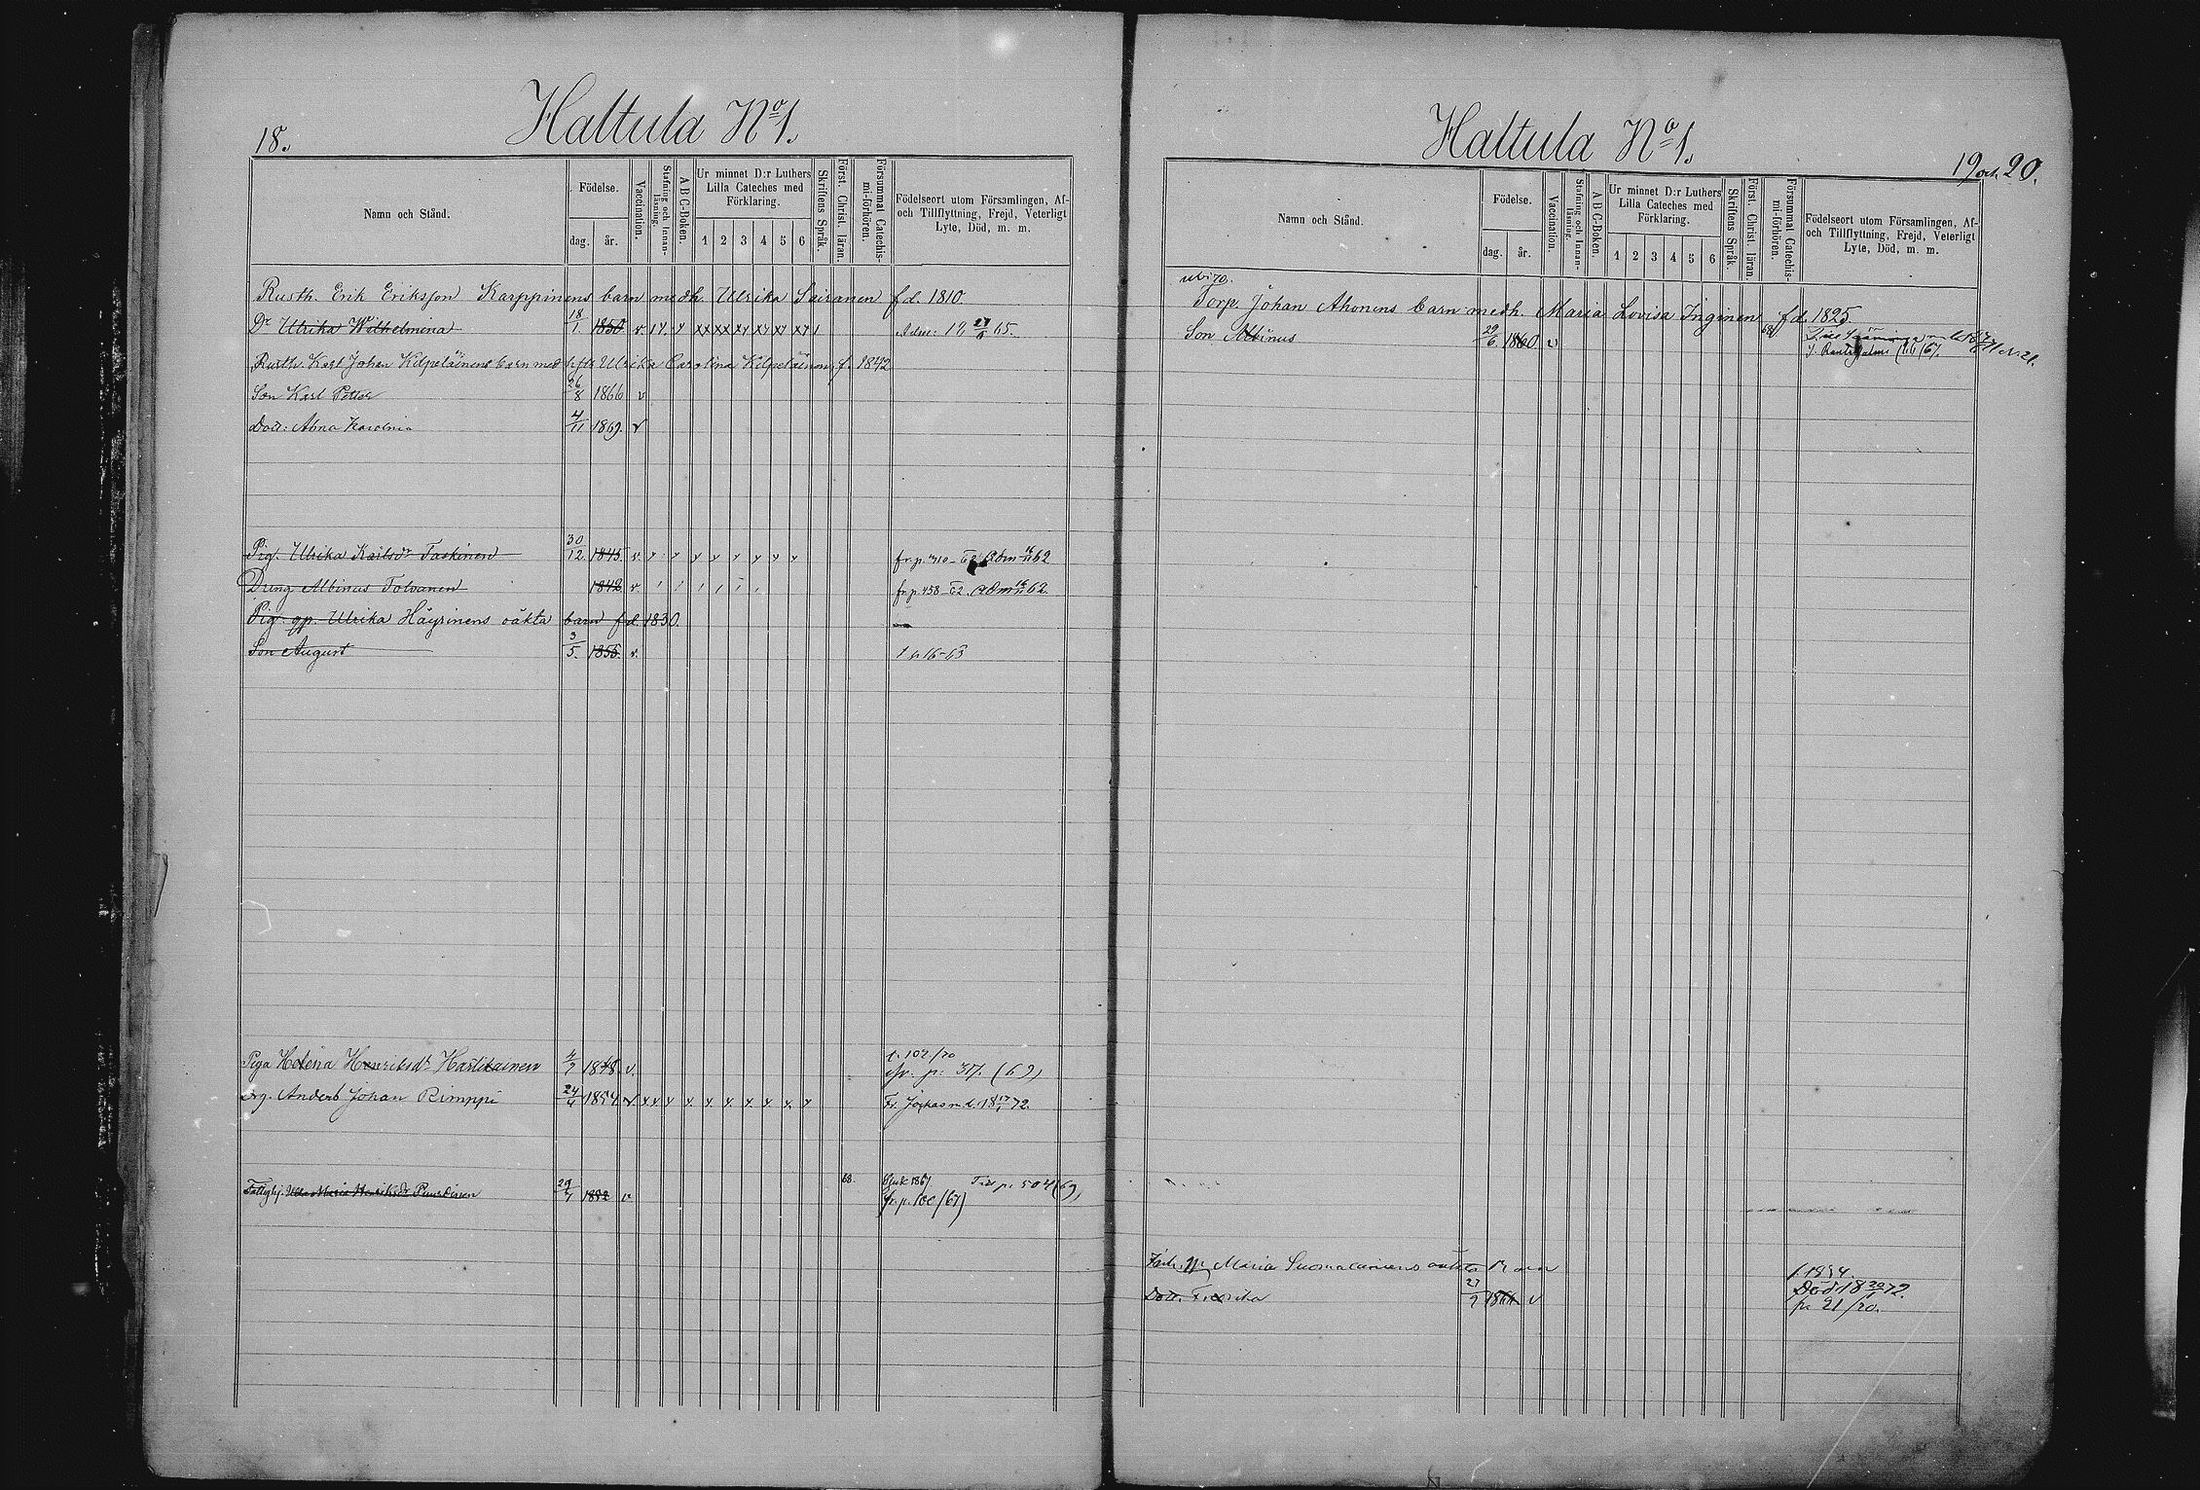 18.
Haltula No 1.
Namn och Stånd.
Födelse.
dag.
år.
Vaccination.
Stafning och Innanläsning.
A B C-Boken.
Ur minnet D:r Luthers
Lilla Cateches med
Förklaring.
1 2 3 4 5 6
Skriftens Språk.
Först. Christ. läran.
Försummat Catechismi-förhören.
Födelseort utom Församlingen, Af-
och Tillflyttning, Frejd, Veterligt
Lyte, Död, m. m.
Rusth. Erik Eriksson Karppinens barn medh. Ulrika Sairanen f.d. 1810.
Dr Ulrika Wilhelmina 18/1. 1850 v. Adm: 65.
Rusth. Karl Johan Kilpeläinens barn med h. Ulrika Carolina Kilpeläinen, f. 1842
Son Karl Petter 26/8 1866 v
Dott: Anna Karolina 4/11 1869. v
Pig. Ulrika Karlsdr Taskinen 30/12. 1845. v. fr. p. 310-62
Dreng Albinus Tolvanen 1842 v. fr. p. 458-62.
Pig. gp. Ulrika Häyrinens oäkta barn f.d. 1830.
Son August 3/5. 1855. v. t. p. 16-63
Piga Helena Henriksdr Hartikainen 4/7 1848. v. t. 102/70
fr. p: 317. (69)
Drg. Anders Johan Rimppi 24/4 1854 v x x x x x x x x x Fr. Jockas m.d. 18 17/1 72.
Fattighj. Ulla Maria Henriksdr 29/7 1852 v 68. Sjuk 1867. p. 504 (69)
fr. p. 100 (67)
Haltula No 1.
19 och 20.
Namn och Stånd.
Födelse.
dag.
år.
Vaccination.
Stafning och Innanläsning.
A B C-Boken.
Ur minnet D:r Luthers
Lilla Cateches med
Förklaring.
1 2 3 4 5 6
Skriftens Språk.
Först. Christ. läran.
Försummat Catechismi-förhören.
Födelseort utom Församlingen, Af-
och Tillflyttning, Frejd, Veterligt
Lyte, Död, m. m.
Torp. Johan Ahonens barn medh. Maria Lovisa Inginen f.d. 1825
Son Albinus 29/6. 1860. v 68
(66) (67.
gp. Maria Suomalainens oäkta barn f. 1834.
Dott. Fredrika 27/9 1866. v Död 18 20/1 72.
p. 21/70.